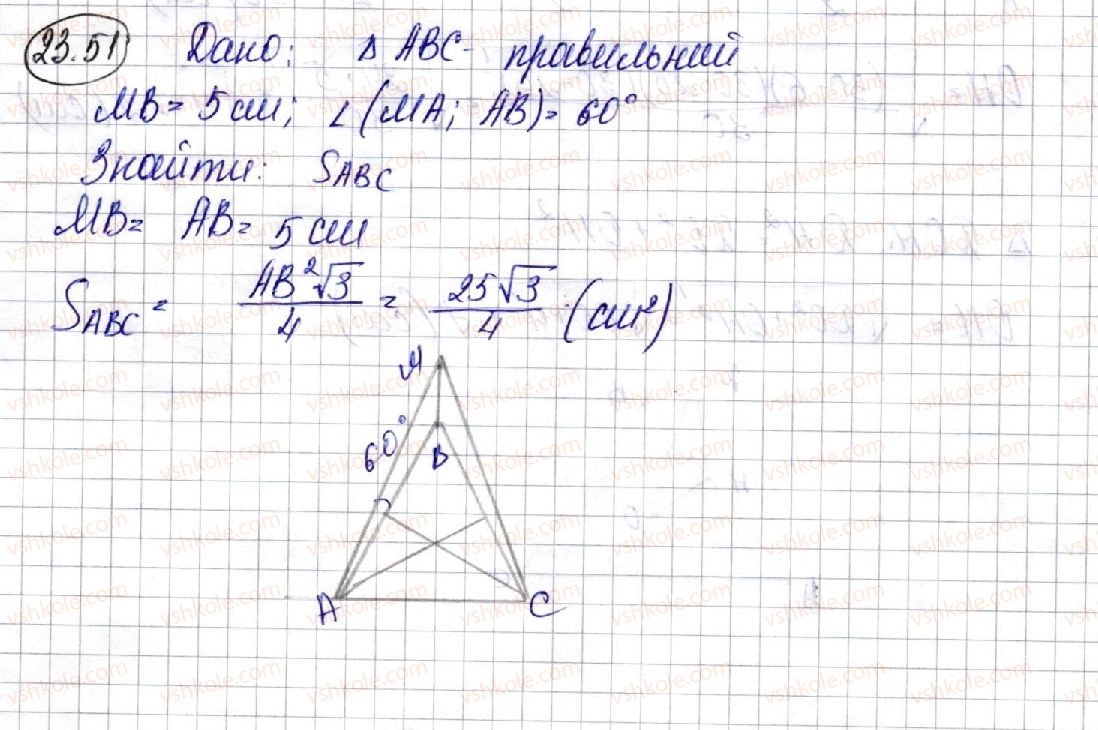 23.51 Дано: Δ ABC - правильний
MB = 5 см; ∠(MA; AB) = 60°
Знайти: S_ABC
MB = AB = 5 см
S_ABC = AB²√3/4 = 25√3/4 (см²)
M
60°
B
A C
vshkole.com